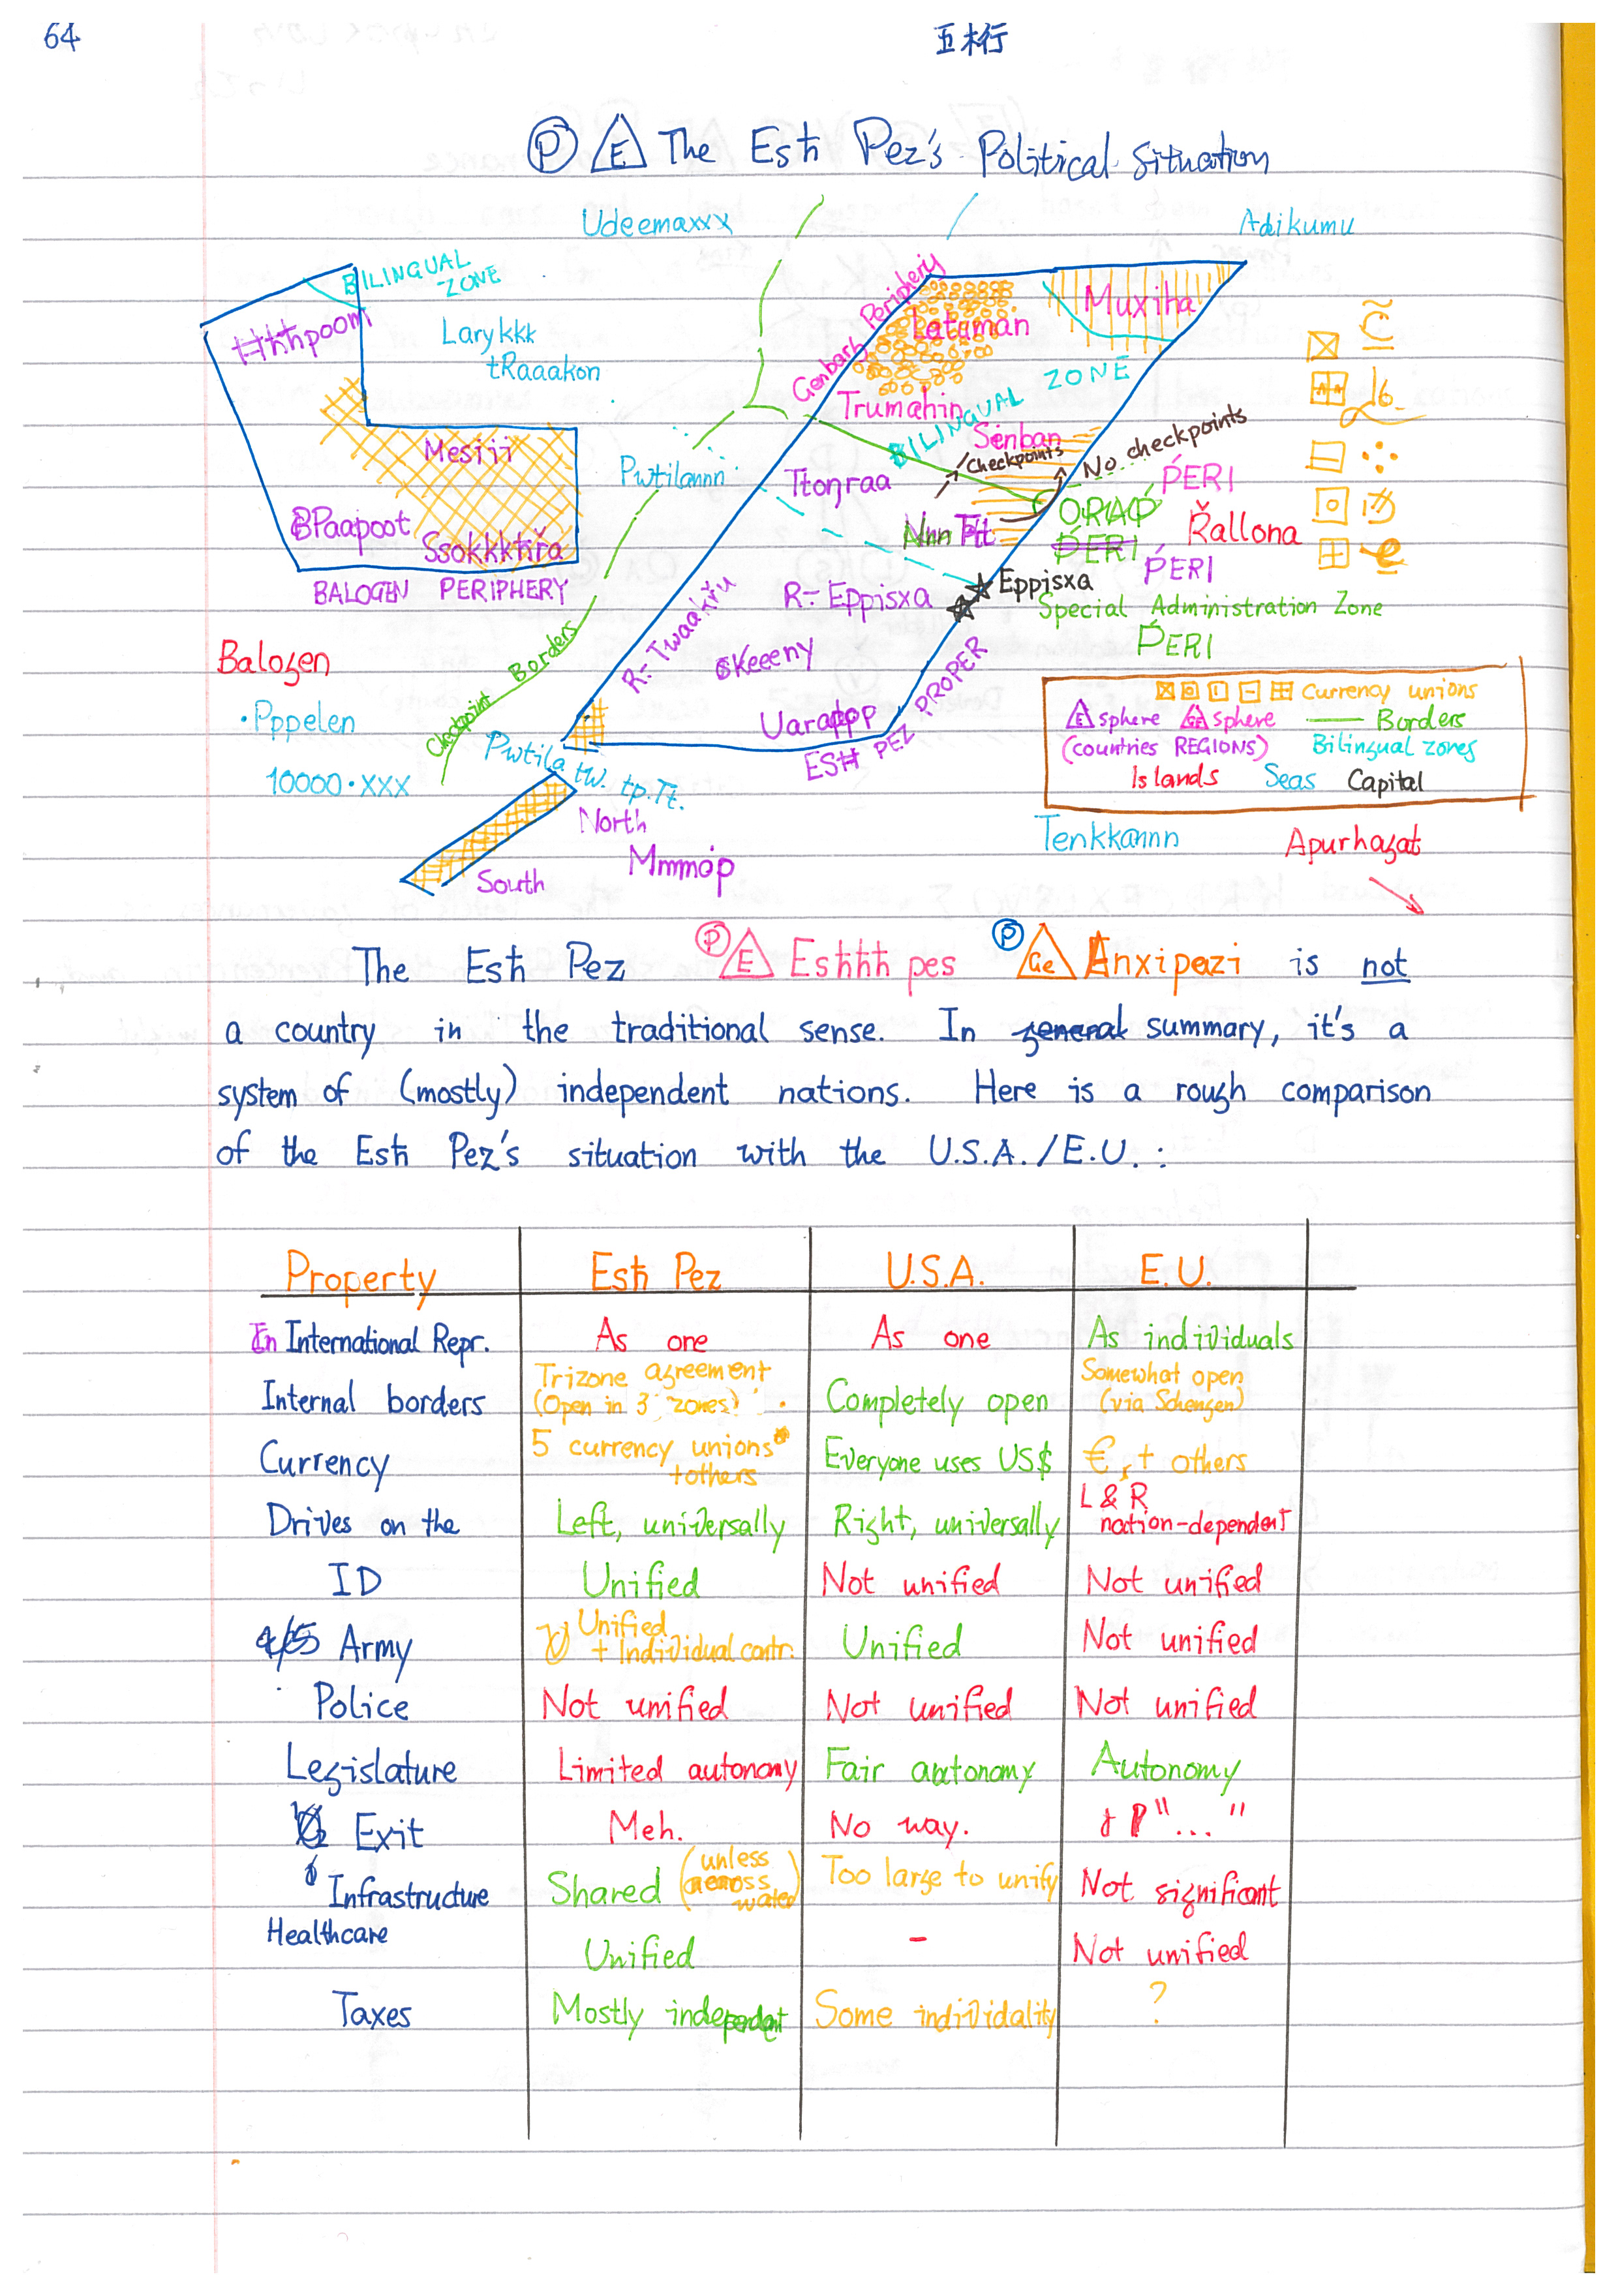 64
五行
P E The Esħ Pez's Political Situation
Udeemaxxx
Adikumu
BILINGUAL ZONE
Larykkk
tRaaakon
Mesiii
BPaapoot
BALOGEN PERIPHERY
Balogen
Pppelen
10000·xxx
Checkpoint Borders
Pwtilannn
Genbarh Periphery
Latuman
Muxiha
Trumahin
BILINGUAL ZONE
Senban
Checkpoints
No checkpoints
Ttoŋraa
PERI
Řallona
PERI
PERI
Eppisxa
R-Eppisxa
Special Administration Zone
PERI
R-Twaakřu
Keeeny
Uarappp
ESĦ PEZ PROPER
Pwtila tw. tp.Tt.
North
Mmmóp
South
Currency unions
E sphere Ge sphere Borders
(countries REGIONS) Bilingual zones
Islands Seas Capital
Tenkkannn
Apurhagat
The Esħ Pez P E Eshħħ pes P Ge Anxipazi is not
a country in the traditional sense. In general summary, it's a
system of (mostly) independent nations. Here is a rough comparison
of the Esħ Pez's situation with the U.S.A./E.U.:
Property Esħ Pez U.S.A. E.U.
International Repr. As one As one As individuals
Internal borders Trizone agreement (Open in 3 zones) Completely open Somewhat open (via Schengen)
Currency 5 currency unions* +others Everyone uses US$ €, + others
Drives on the Left, universally Right, universally L & R nation-dependent
ID Unified Not unified Not unified
Army Unified + Individual contr. Unified Not unified
Police Not unified Not unified Not unified
Legislature Limited autonomy Fair autonomy Autonomy
Exit Meh. No way. "..."
Infrastructure Shared (unless across water) Too large to unify Not significant
Healthcare Unified - Not unified
Taxes Mostly independent Some individality ?